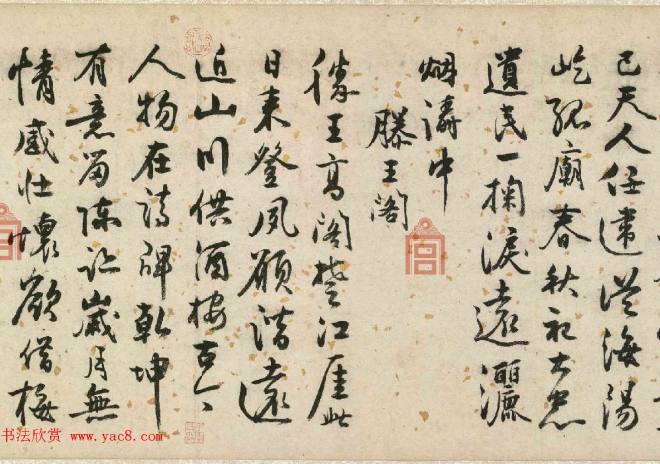 已天人 海陽
屹孤廟春秋祀大忠
遺民一掬淚遠灑
烟濤中
滕王閣
滕王高閣楚江厓此
日来登夙願諧遠
近山川供酒按古今
人物在詩碑乾坤
有意留陳迹歲月無
情感壯懷欲借梅
书法欣赏 www.yac8.com